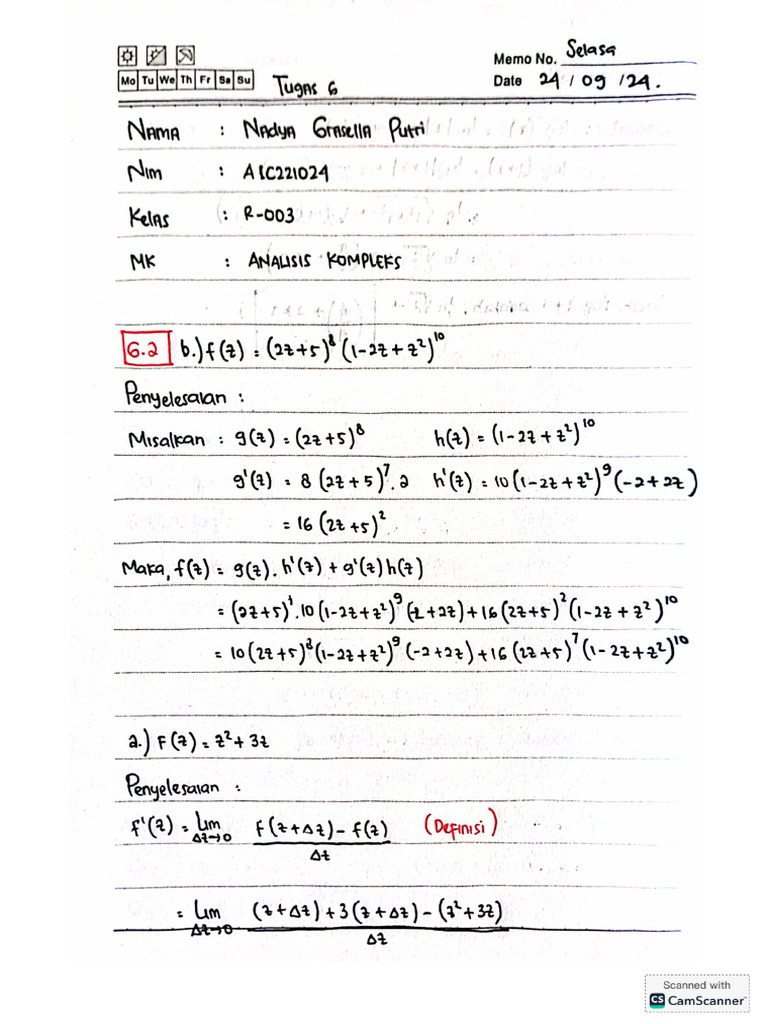 Memo No. Selasa
Mo Tu We Th Fr Sa Su
Tugas 6
Date 24 / 09 / 24.
Nama : Nadya Grasella Putri
Nim : A1C221024
Kelas : R-003
MK : ANALISIS KOMPLEKS
6.2 b.) f(z) = (2z+5)⁸ (1-2z+z²)¹⁰
Penyelesaian :
Misalkan : g(z) = (2z+5)⁸ h(z) = (1-2z+z²)¹⁰
g'(z) = 8 (2z+5)⁷. 2 h'(z) = 10(1-2z+z²)⁹(-2+2z)
= 16 (2z+5)²
Maka, f(z) = g(z). h'(z) + g'(z) h(z)
= (2z+5)¹.10(1-2z+z²)⁹ (2+2z) + 16(2z+5)² (1-2z+z²)¹⁰
= 10(2z+5)⁸(1-2z+z²)⁹ (-2+2z) + 16 (2z+5)⁷ (1-2z+z²)¹⁰
a.) F(z) = z²+3z
Penyelesaian :
f'(z) = Lim Δz→0 F(z+Δz) - f(z) / Δz (Definisi)
= Lim Δz→0 (z+Δz) + 3(z+Δz) - (z²+3z) / Δz
Scanned with
CS CamScanner